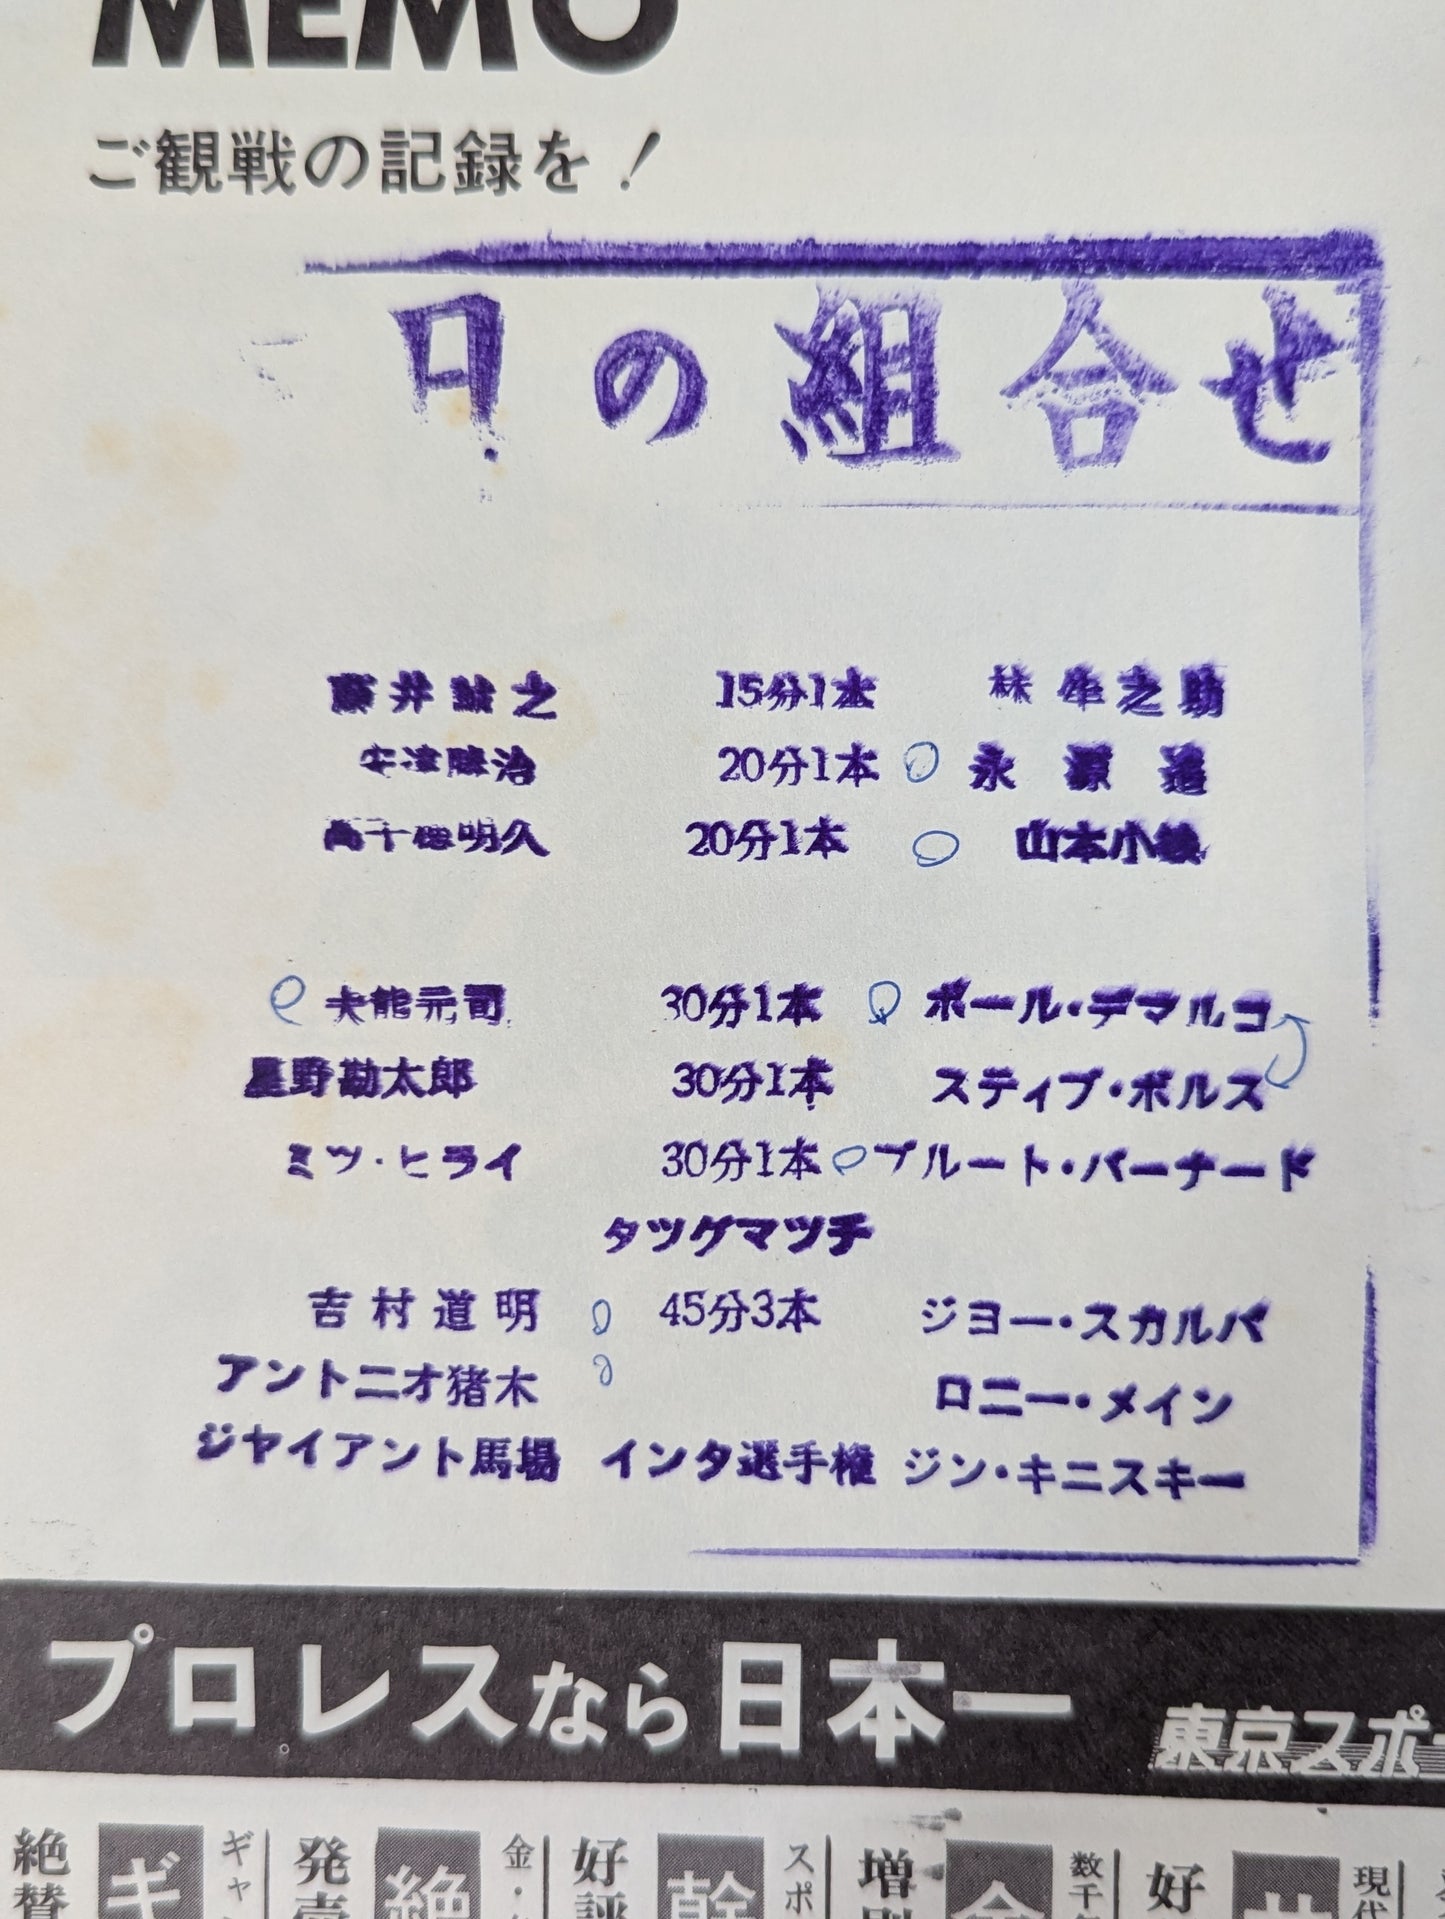 MEMO
ご観戦の記録を！
日の組合せ
藤井誠之 15分1本 林牛之助
安達勝治 20分1本 永源遙
高千穂明久 20分1本 山本小鉄
大熊元司 30分1本 ポール・デマルコ
星野勘太郎 30分1本 スティブ・ボルス
ミツ・ヒライ 30分1本 ブルート・バーナード
タツグマツチ
吉村道明 45分3本 ジヨー・スカルパ
アントニオ猪木 ロニー・メイン
ジヤイアント馬場 インタ選手権 ジン・キニスキー
プロレスなら日本一 東京スポー
絶賛 ギ ギャ 発売 絶 金・ 好評 幹 スポ 増刊 数千 好 現代